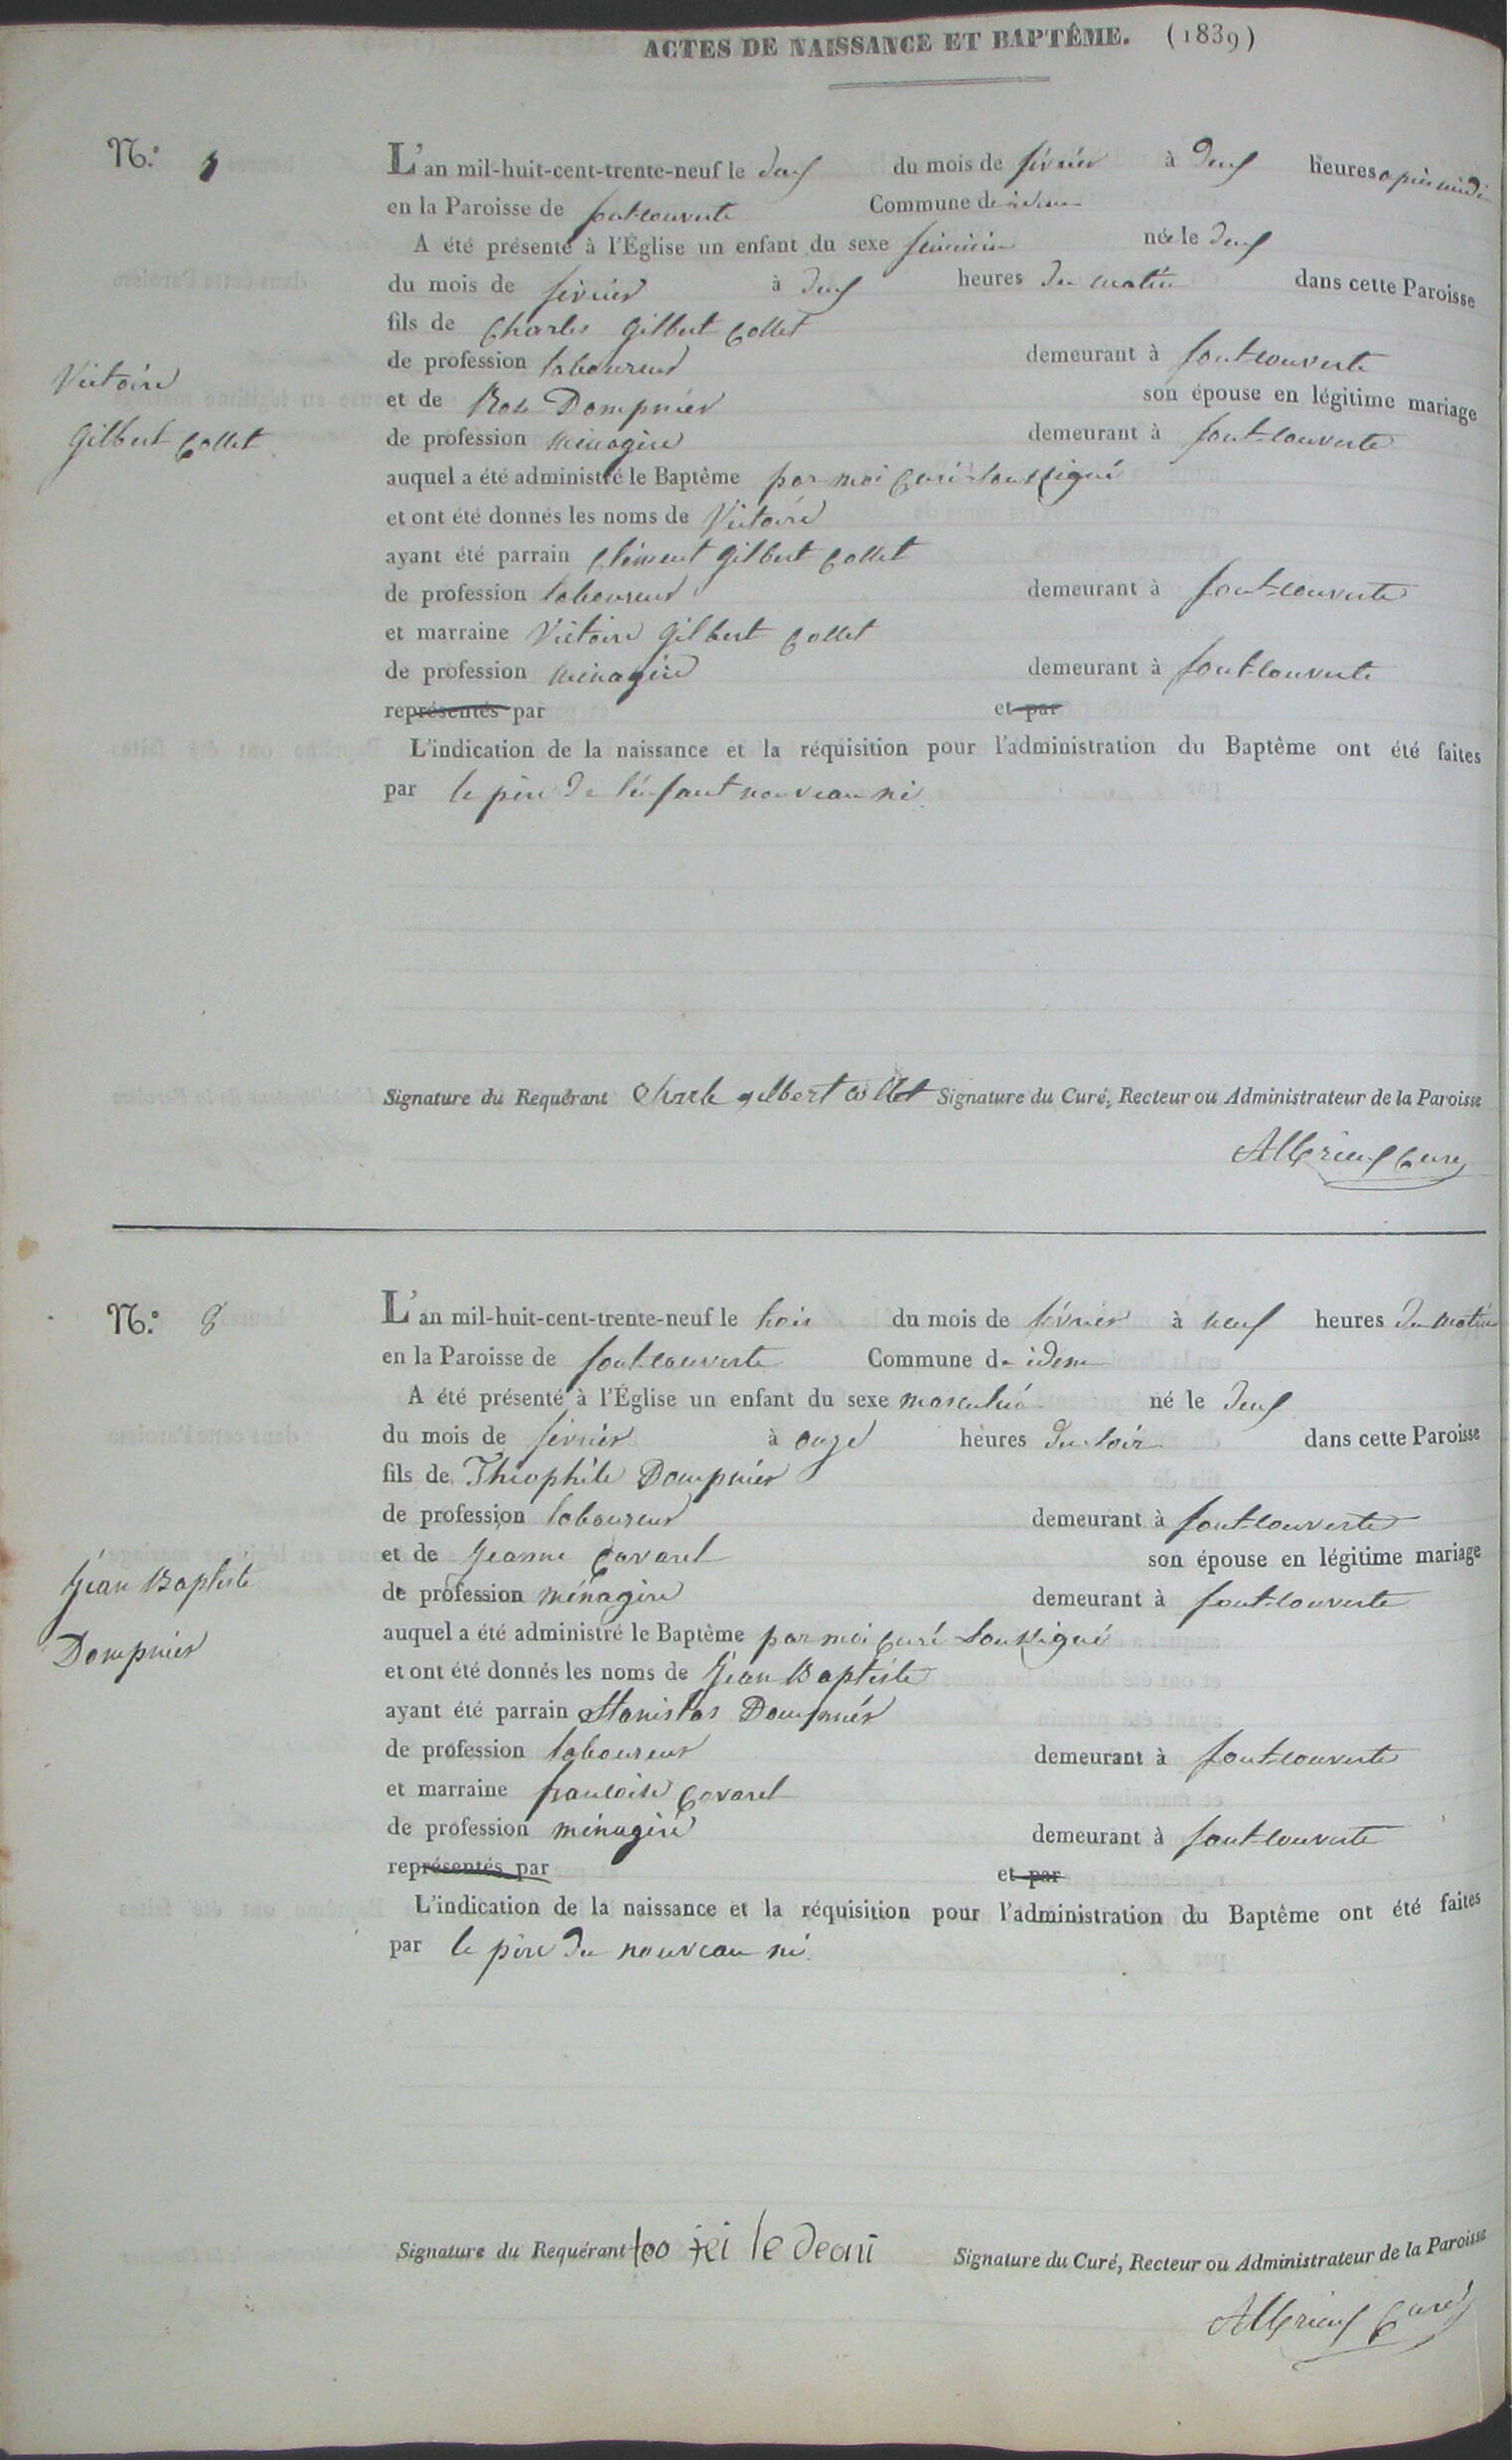 ACTES DE NAISSANCE ET BAPTÊME. (1839)
N.º
L'an mil-huit-cent-trente-neuf le deux du mois de février à deux heures après midi
en la Paroisse de fontcouverte Commune de idem
A été présenté à l'Église un enfant du sexe féminin née le deux
du mois de février à deux heures du matin dans cette Paroisse
fils de Charles Gilbert Collet
de profession laboureur demeurant à fontcouverte
Victoire
et de Rose Dompnier son épouse en légitime mariage
Gilbert Collet
de profession ménagère demeurant à fontcouverte
auquel a été administré le Baptême par moi Curé soussigné
et ont été donnés les noms de Victoire
ayant été parrain Clément Gilbert Collet
de profession laboureur demeurant à fontcouverte
et marraine Victoire Gilbert Collet
de profession ménagère demeurant à fontcouverte
représentés par et par
L'indication de la naissance et la réquisition pour l'administration du Baptême ont été faites
par le père de l'enfant nouveau né
Signature du Requérant Charle gilbert collet Signature du Curé, Recteur ou Administrateur de la Paroisse
Albrieux Curé
N.º 8
L'an mil-huit-cent-trente-neuf le trois du mois de février à neuf heures du matin
en la Paroisse de fontcouverte Commune de idem
A été présenté à l'Église un enfant du sexe masculin né le deux
du mois de février à onze heures du soir dans cette Paroisse
fils de Théophile Dompnier
de profession laboureur demeurant à fontcouverte
et de Jeanne Covarel son épouse en légitime mariage
Jean Baptiste
de profession ménagère demeurant à fontcouverte
auquel a été administré le Baptême par moi Curé soussigné
Dompnier
et ont été donnés les noms de Jean Baptiste
ayant été parrain Stanislas Dompnier
de profession laboureur demeurant à fontcouverte
et marraine françoise Covarel
de profession ménagère demeurant à fontcouverte
représentés par et par
L'indication de la naissance et la réquisition pour l'administration du Baptême ont été faites
par le père du nouveau né
Signature du Requérant Signature du Curé, Recteur ou Administrateur de la Paroisse
Albrieux Curé